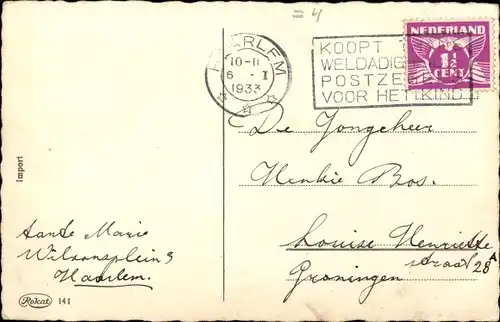 = 4
HAARLEM
10-11
6 . I
1933
KOOPT
WELDADIG
POSTZE
VOOR HET KIND
NEDERLAND
1½
CENT
De Jongeheer
Henkie Bos.
Louise Henriette
straat 28A
Groningen
tante Marie
Wilsonsplein 9
Haarlem.
Import
Rokat 141